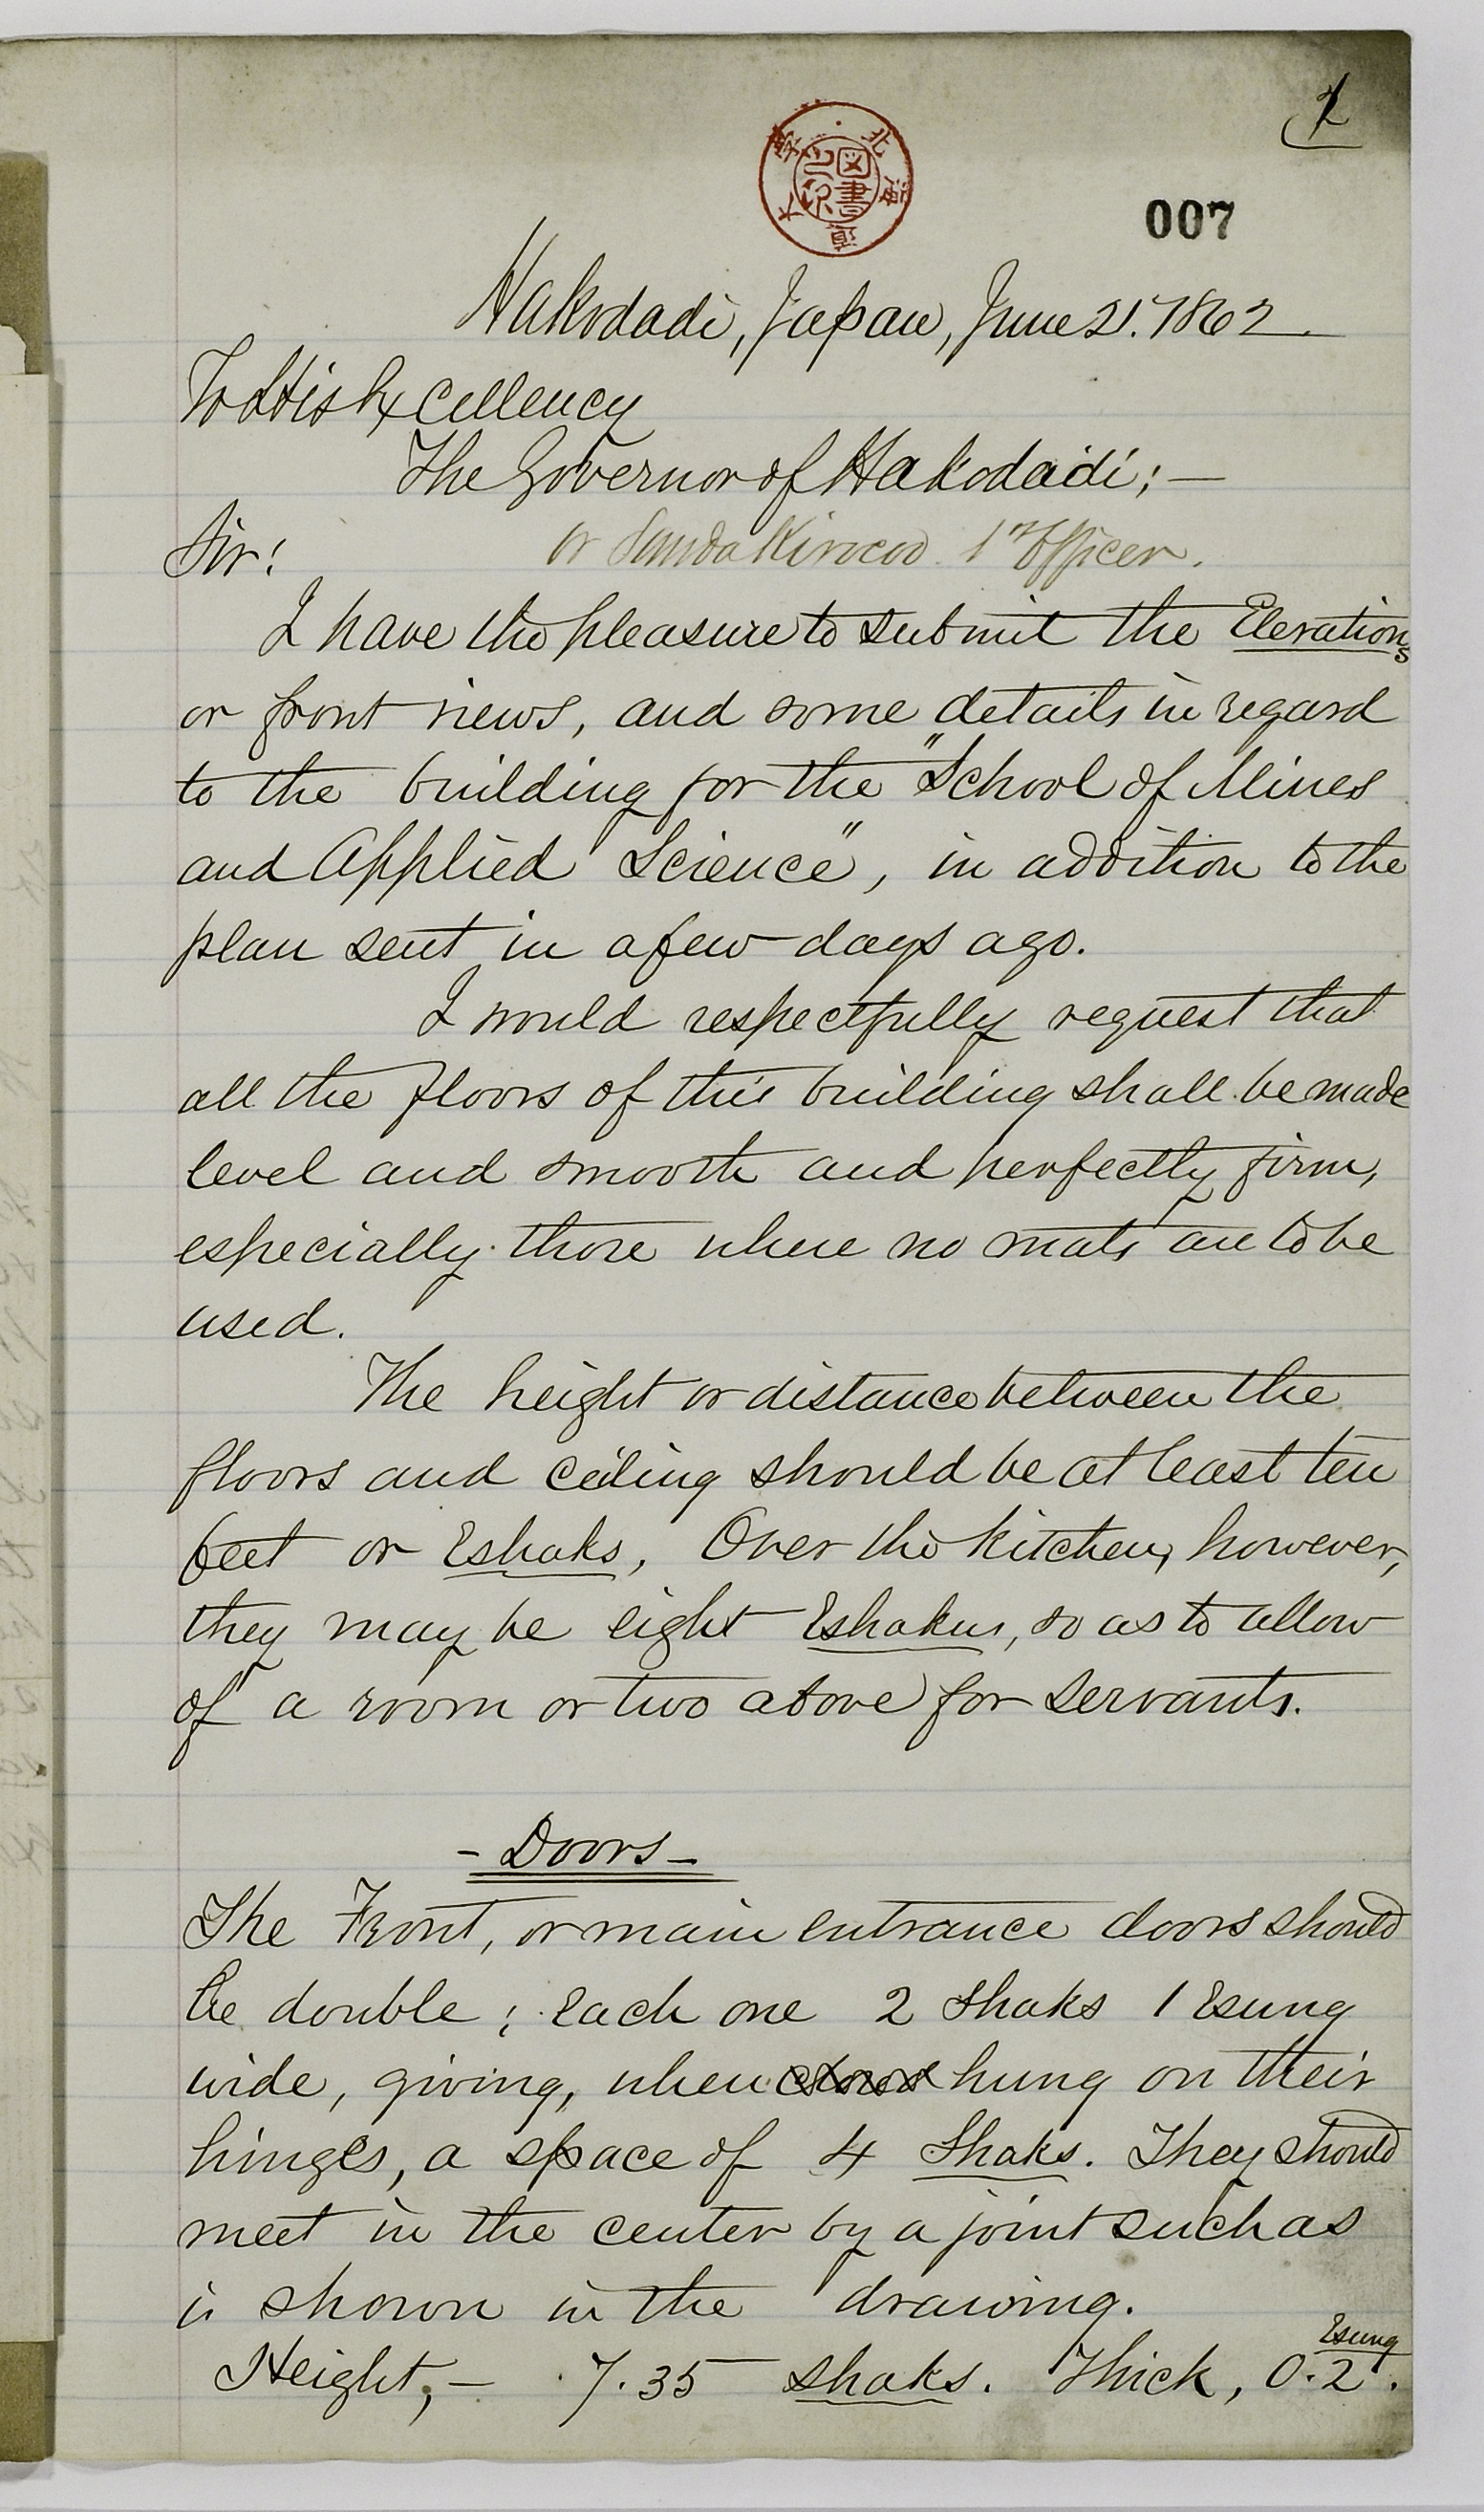 1
007
Hakodadi, Japan, June 21. 1862.
To His Excellency
The Governor of Hakodadi; —
Sir!
or 1st Officer.
I have the pleasure to submit the Elevations
or front views, and some details in regard
to the building for the "School of Mines
and Applied Science", in addition to the
plan sent in a few days ago.
I would respectfully request that
all the floors of this building shall be made
level and smooth and perfectly firm,
especially those where no mats are to be
used.
The height or distance between the
floors and ceiling should be at least ten
feet or Eshaks, Over the kitchen, however,
they may be eight Eshakus, so as to allow
of a room or two above for servants.
- Doors -
The Front, or main entrance doors should
be double; each one 2 Shaks 1 Esung
wide, giving, when hung on their
hinges, a space of 4 Shaks. They should
meet in the center by a joint such as
is shown in the drawing.
Esung
Height, — 7.35 shaks. Thick, 0.2.